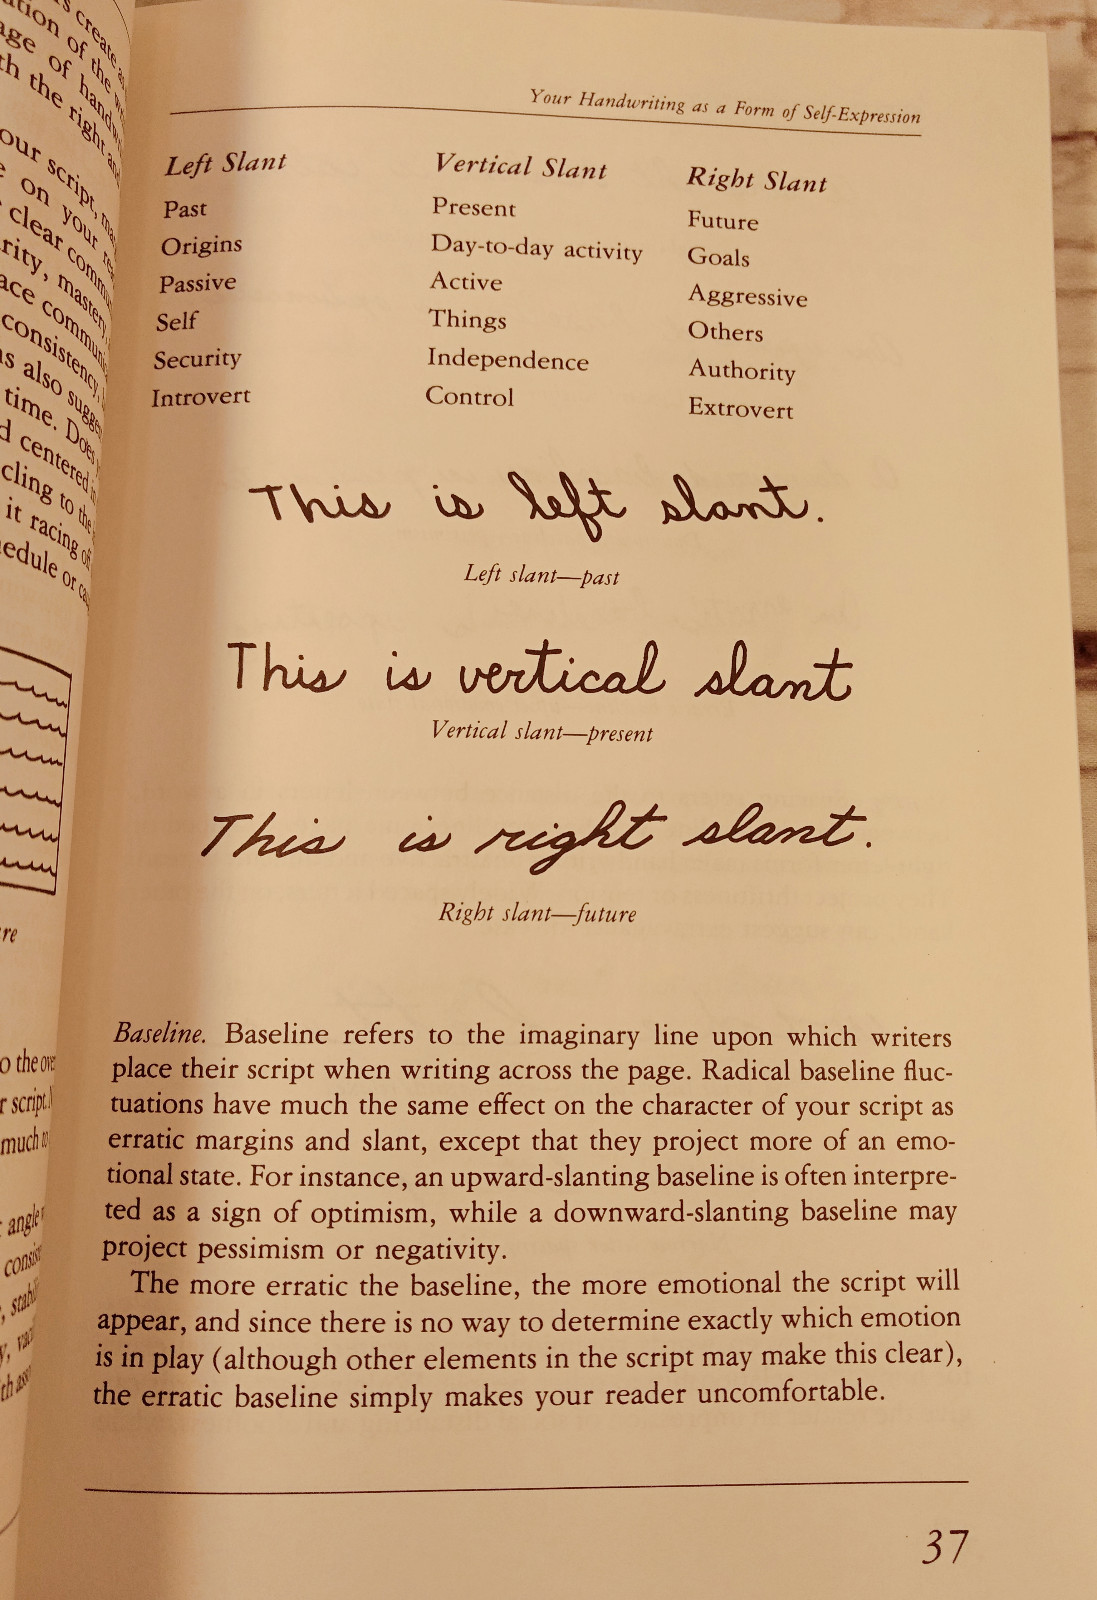 Your Handwriting as a Form of Self-Expression
Left Slant Vertical Slant Right Slant
Past Present Future
Origins Day-to-day activity Goals
Passive Active Aggressive
Self Things Others
Security Independence Authority
Introvert Control Extrovert
This is left slant.
Left slant—past
This is vertical slant
Vertical slant—present
This is right slant.
Right slant—future
Baseline. Baseline refers to the imaginary line upon which writers
place their script when writing across the page. Radical baseline fluc-
tuations have much the same effect on the character of your script as
erratic margins and slant, except that they project more of an emo-
tional state. For instance, an upward-slanting baseline is often interpre-
ted as a sign of optimism, while a downward-slanting baseline may
project pessimism or negativity.
The more erratic the baseline, the more emotional the script will
appear, and since there is no way to determine exactly which emotion
is in play (although other elements in the script may make this clear),
the erratic baseline simply makes your reader uncomfortable.
37